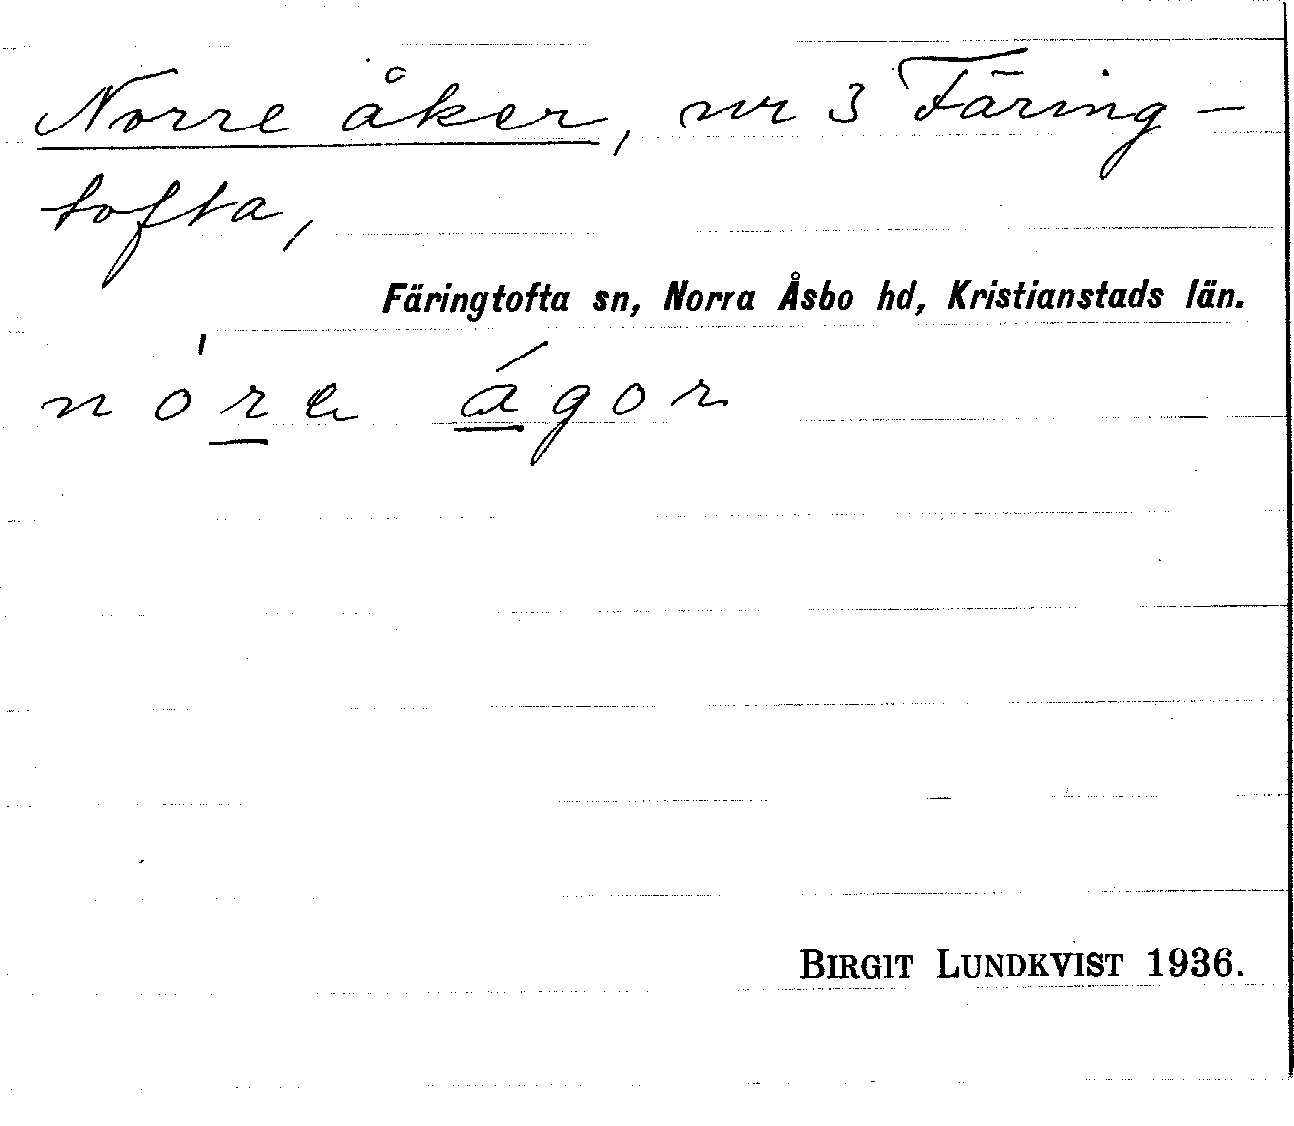 Norre åker, nr 3 Färing-
tofta,
Färingtofta sn, Norra Åsbo hd, Kristianstads län.
nó̱re á̱gor
BIRGIT LUNDKVIST 1936.